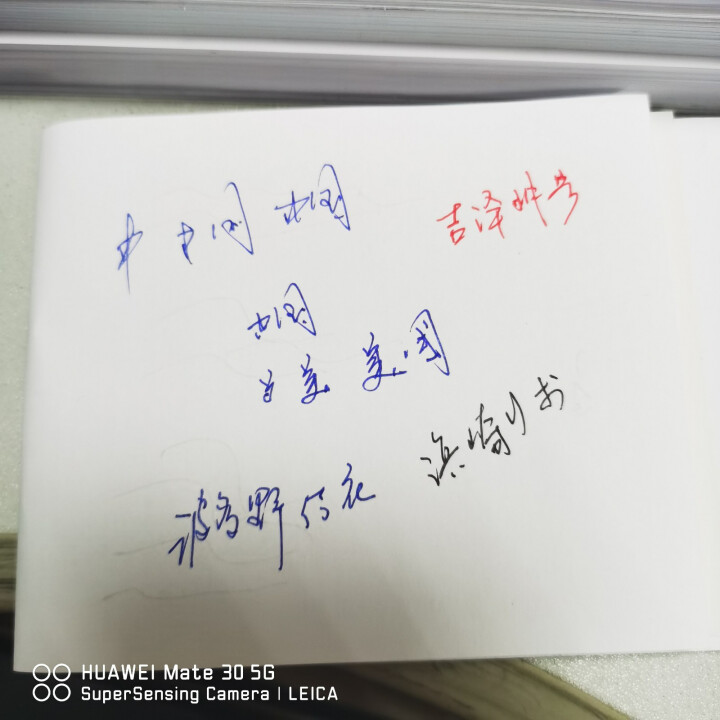 中 中国 中国
吉泽明步
中国
美 美国
滨崎
波多野结衣
HUAWEI Mate 30 5G
SuperSensing Camera | LEICA